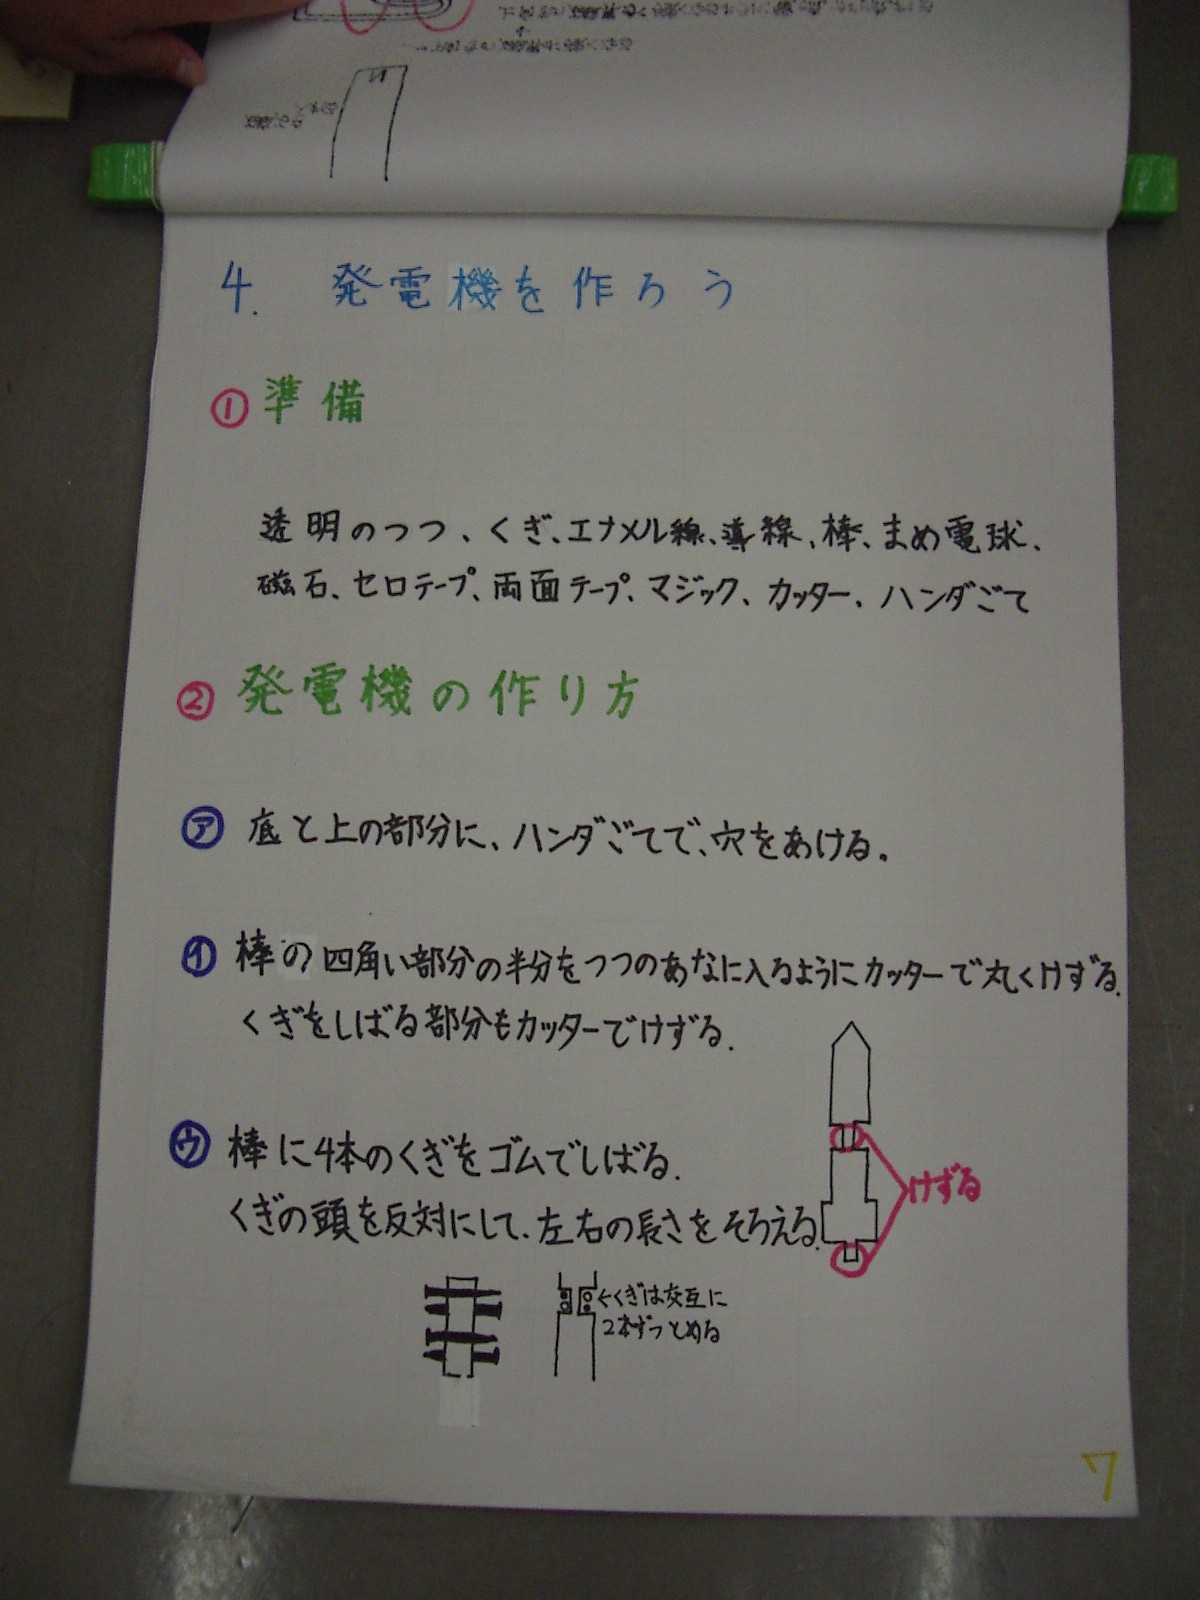 4. 発電機を作ろう
① 準備
透明のつつ、くぎ、エナメル線、導線、棒、まめ電球、
磁石、セロテープ、両面テープ、マジック、カッター、ハンダごて
② 発電機の作り方
㋐ 底と上の部分に、ハンダごてで、穴をあける。
㋑ 棒の四角い部分の半分をつつのあなに入るようにカッターで丸くけずる。
くぎをしばる部分もカッターでけずる。
㋒ 棒に4本のくぎをゴムでしばる。
けずる
くぎの頭を反対にして、左右の長さをそろえる。
←くぎは交互に
2本ずつとめる
7